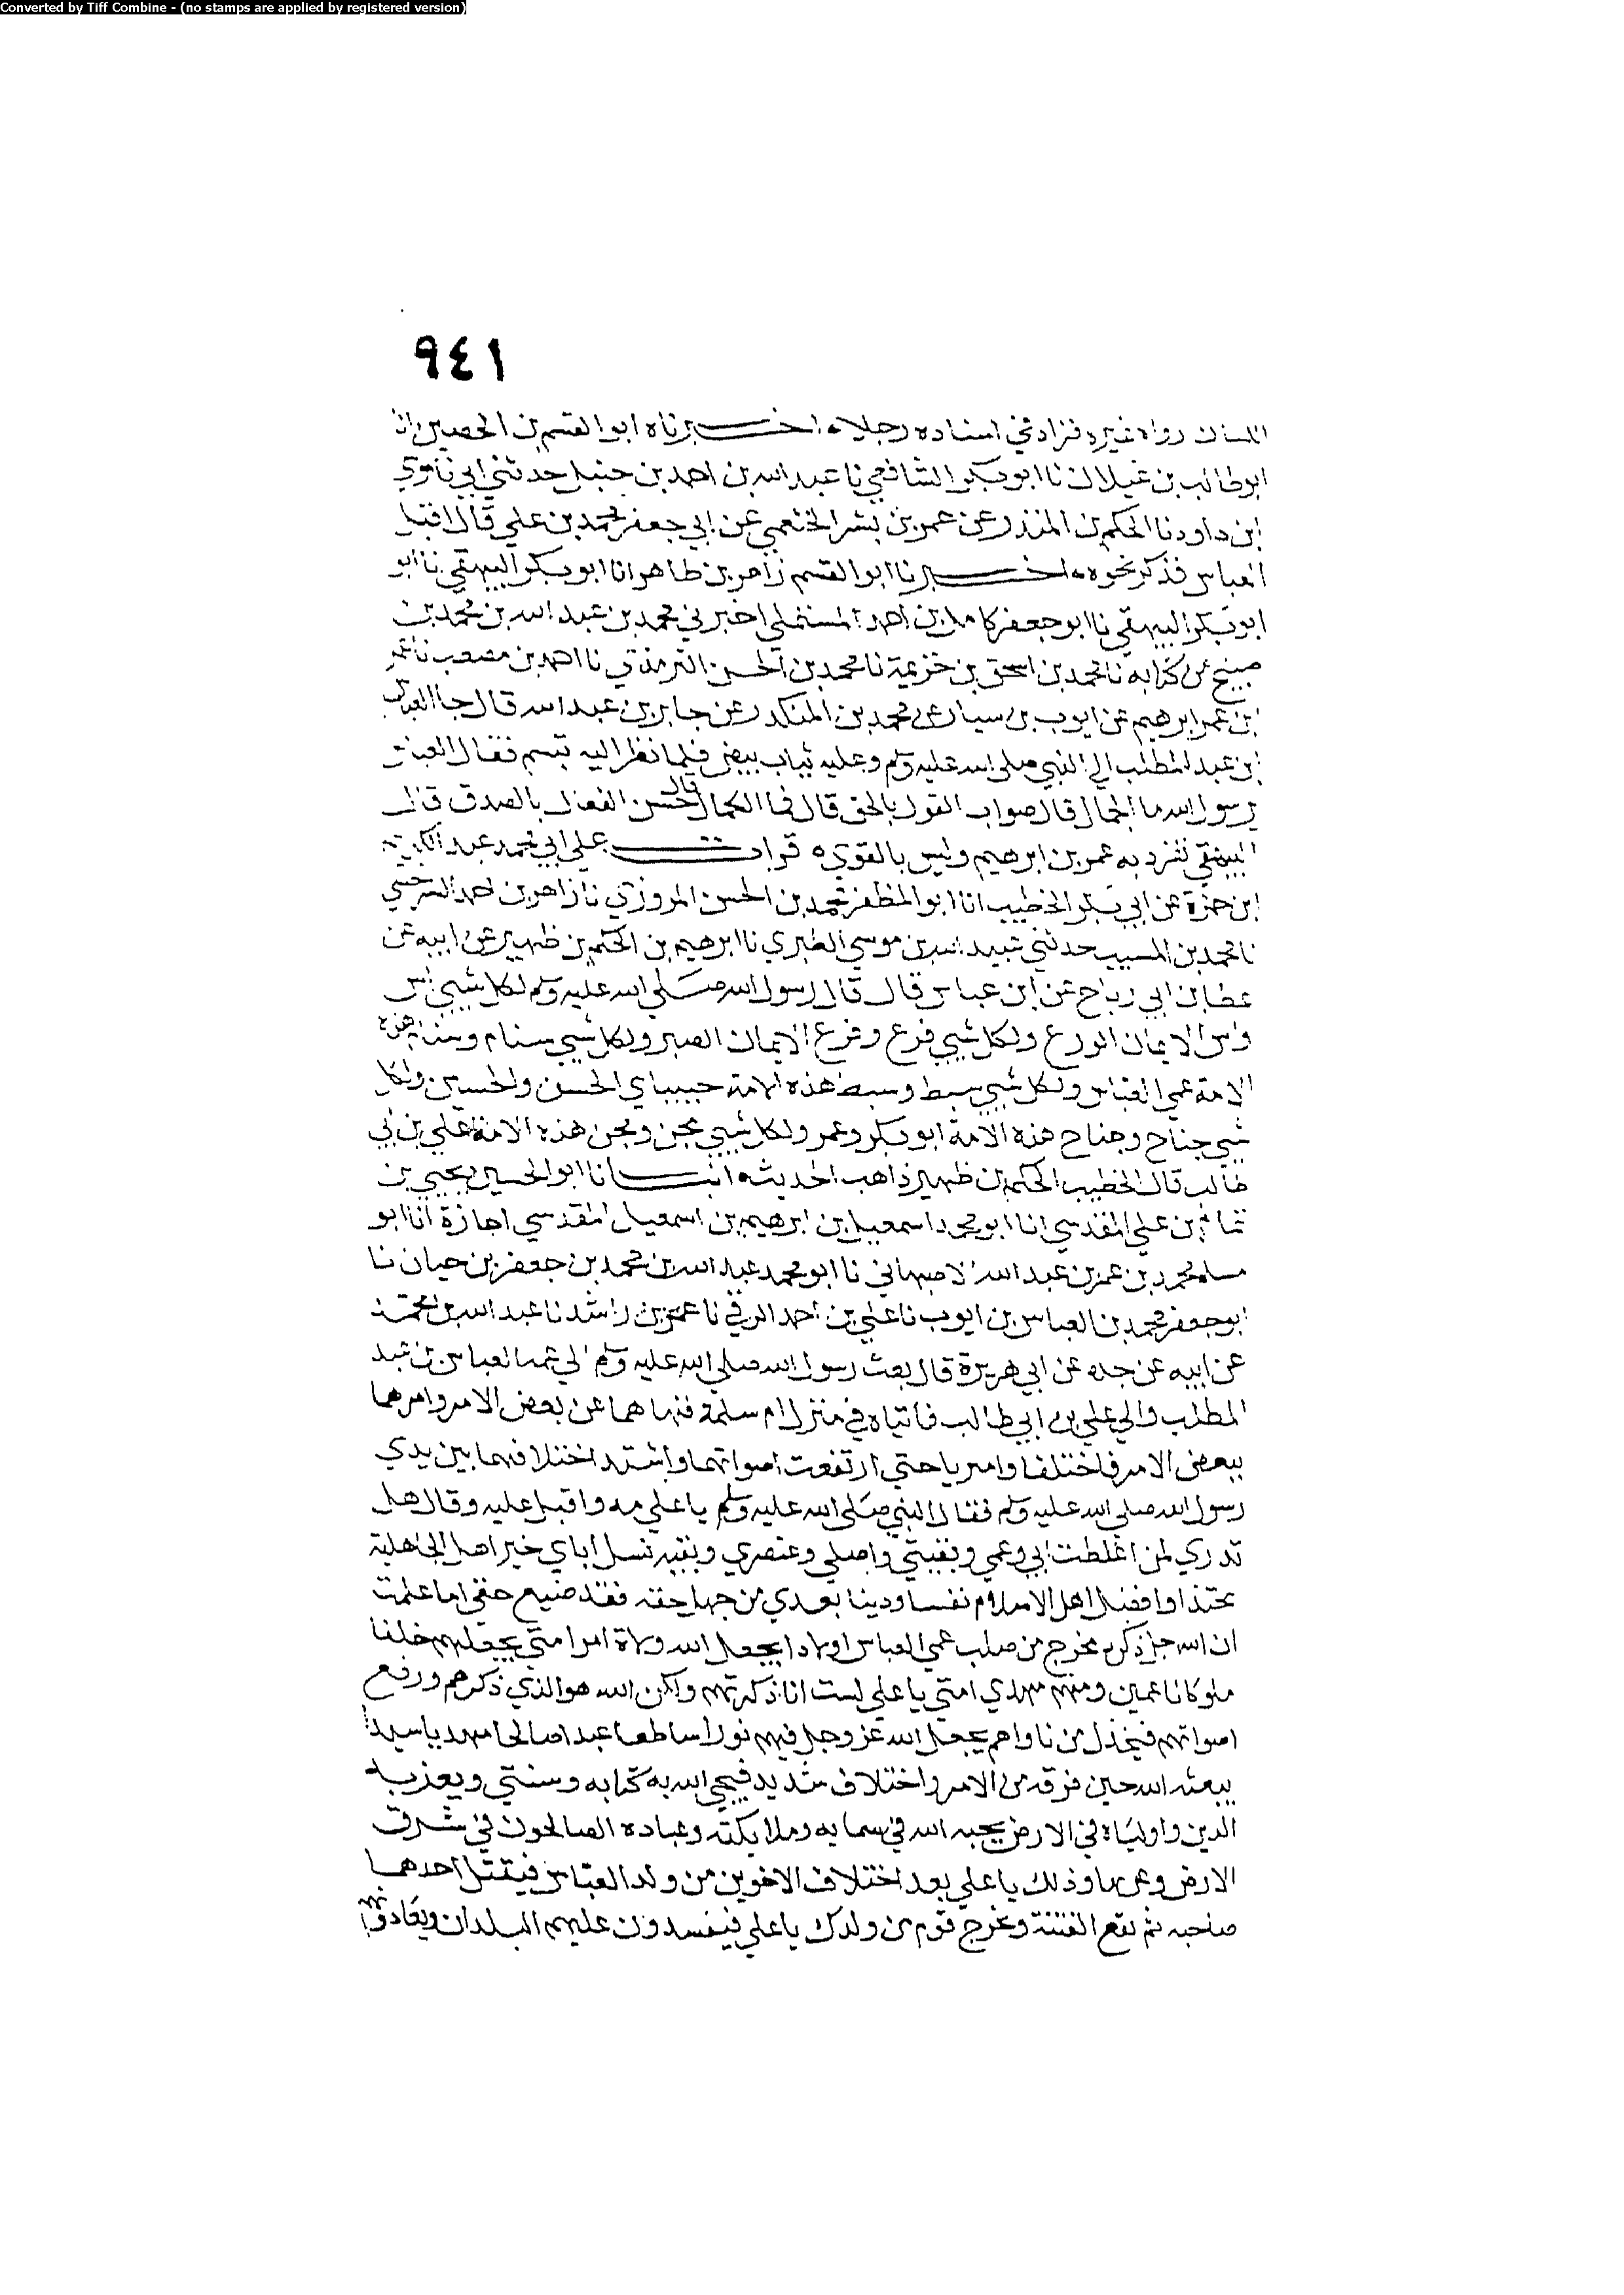 Converted by Tiff Combine - (no stamps are applied by registered version)
٩٤١
اللسان رواه غيره فزاد في اسناده رجلا اخبرناه ابو القسم بن الحصين انا
ابو طالب بن غيلان نا ابو بكر الشافعي نا عبد الله بن احمد بن حنبل حدثني ابي نا موسى
ابن داود نا الحكم بن المنذر عن عمر بن بشر الخثعمي عن ابي جعفر محمد بن علي قال اقبل
العباس فذكر نحوه اخبرنا ابو القسم زاهر بن طاهر انا ابو بكر البيهقي نا ابو
ابو بكر البيهقي نا ابو جعفر كامل بن احمد المستملي اخبرني محمد بن عبد الله بن محمد بن
صبيح من كتابه نا محمد بن اسحق بن خزيمة نا محمد بن الحسن الترمذي نا احمد بن مصعب نا عمر
ابن عمر ابرهيم عن ايوب بن سيار عن محمد بن المنكدر عن جابر بن عبد الله قال جا العباس
ابن عبد المطلب الي النبي صلى الله عليه وسلم وعليه ثياب بيض فلما نظر اليه تبسم فقال العباس
يرسول الله ما الجمال قال صواب القول بالحق قال فما الكمال قال حسن الفعال بالصدق قال
البيهقي تفرد به عمر بن ابرهيم وليس بالقوي قرات علي ابي محمد عبد الكريم
ابن حمزة عن ابي بكر الخطيب انا ابو المظفر محمد بن الحسن المروزي نا زاهر بن احمد السرخسي
نا محمد بن المسيب حدثني عبيد الله بن موسي الطبري نا ابرهيم بن الحكم بن ظهير عن ابيه عن
عطا بن ابي رباح عن ابن عباس قال قال رسول الله صلى الله عليه وسلم لكل شيي اس
واس الايمان الورع ولكل شيي فرع وفرع الايمان الصبر ولكل شيي سنام وسنام هذه
الامة عمي العباس ولكل شيي سبط وسبط هذه الامة حبيباي الحسن والحسين ولكل
شيي جناح وجناح هذه الامة ابو بكر وعمر ولكل شيي مجن ومجن هذه الامة علي بن ابي
طالب قال الخطيب الحكم بن ظهير ذاهب الحديث انبانا ابو الحسين يحيي بن
تمام بن علي المقدسي انا ابو محمد اسمعيل بن ابرهيم بن اسمعيل المقدسي اجازة انا ابو
مسلم محمد بن عمر بن عبد الله الاصبهاني نا ابو محمد عبد الله بن محمد بن جعفر بن حيان نا
ابو جعفر محمد بن العباس بن ايوب نا علي بن احمد الرقي نا عمر بن راشد نا عبد الله بن محمد
عن ابيه عن جده عن ابي هريرة قال بعث رسول الله صلي الله عليه وسلم الي عمه العباس بن عبد
المطلب والي علي بن ابي طالب فاتياه في منزل ام سلمة فنهاهما عن بعض الامر وامرهما
ببعض الامر فاختلفا وامتريا حتي ارتفعت اصواتهما واشتد اختلافهما بين يدي
رسول الله صلى الله عليه وسلم فقال النبي صلى الله عليه وسلم يا علي مه واقبل عليه وقال هل
تدري لمن اغلظت ابي وعمي وبقيتي واصلي وعنصري وبقيه نسل اباي خير اهل الجاهلية
محتدا وافضل اهل الاسلام نفسا ودينا بعدي من جهل حقه فقد ضيع حقي اما علمت
ان الله جل ذكره مخرج من صلب عمي العباس اولادا يجعل الله ولاة امر امتي يجعلهم خلفا
ملوكا ناعمين ومنهم مهدي امتي يا علي لست انا ذكرتهم ولكن الله هو الذي ذكرهم ورفع
اصواتهم فيخذل من ناواهم يجعل الله عز وجل فيهم نورا ساطعا عبدا صالحا مهديا سيدا
يبعثه الله حين فرقه من الامر واختلاف شديد فيحيي الله به كتابه وسنتي ويعز به
الدين واولياه في الارض يحبه الله في سمايه وملايكته وعباده الصالحون في شرق
الارض وغربها وذلك يا علي بعد اختلاف الاخوين من ولد العباس فيقتل احدهما
صاحبه ثم تقع الفتنة ويخرج قوم من ولدك يا علي فيفسدون عليهم البلدان ويعادونهم